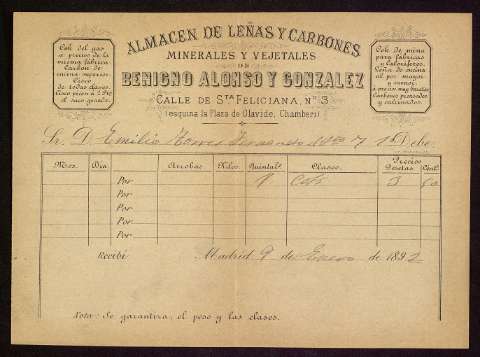 ALMACEN DE LEÑAS Y CARBONES
MINERALES Y VEJETALES
DE
BENIGNO ALONSO Y GONZALEZ
CALLE DE STA FELICIANA, Nº 3
(esquina la Plaza de Olavide, Chamberí)
Cok del gas
á precios de la
misma fábrica
Carbon de
encina superior
Cisco
de todas clases
el saco grande.
Cok de mina
para fábricas
y caloríferos.
Leña de encina
al por mayor
y menor;
á precios muy baratos
Carbones pesados
y envasados.
Sr. D. Emilio Torres Debe:
Mes. Dia. Arrobas. Kilos. Quintals. Clases. Precios
Pesetas Cént.s
Por 1 Cok 3 50
Por
Por
Por
Por
Recibí Madrid 9 de Enero de 1892
Nota: Se garantiza, el peso y las clases.